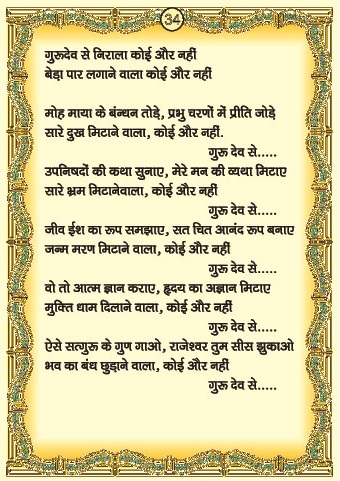 34
गुरूदेव से निराला कोई और नहीं
बेड़ा पार लगाने वाला कोई और नहीं
मोह माया के बंन्धन तोड़े, प्रभु चरणों में प्रीति जोड़े
सारे दुख मिटाने वाला, कोई और नहीं.
गुरू देव से.....
उपनिषदों की कथा सुनाए, मेरे मन की व्यथा मिटाए
सारे भ्रम मिटानेवाला, कोई और नहीं
गुरू देव से.....
जीव ईश का रूप समझाए, सत चित आनंद रूप बनाए
जन्म मरण मिटाने वाला, कोई और नहीं
गुरू देव से.....
वो तो आत्म ज्ञान कराए, हृदय का अज्ञान मिटाए
मुक्ति धाम दिलाने वाला, कोई और नहीं
गुरू देव से.....
ऐसे सत्गुरू के गुण गाओ, राजेश्वर तुम सीस झुकाओ
भव का बंध छुड़ाने वाला, कोई और नहीं
गुरू देव से.....